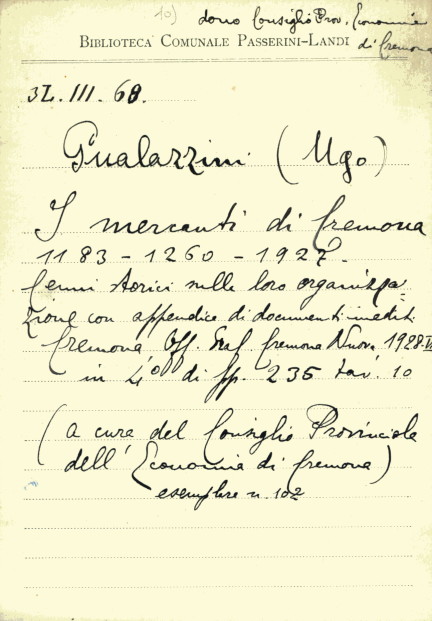 10) dono Consiglio Prov. Economia
di Cremona
BIBLIOTECA COMUNALE PASSERINI-LANDI
3L.III.68.
Gualazzini (Ugo)
I mercanti di Cremona
1183-1260-1927.
Cenni storici sulla loro organizza
zione con appendice di documenti inediti
Cremona Off. Graf. Cremona Nuova 1928-VI
in 4° di pp. 235 tav. 10
(a cura del Consiglio Provinciale
dell'Economia di Cremona)
esemplare n. 102